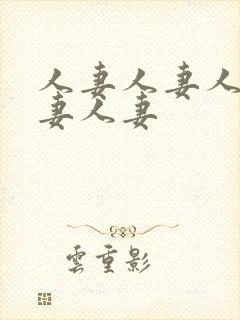 人妻人妻人
妻人妻
雲重影